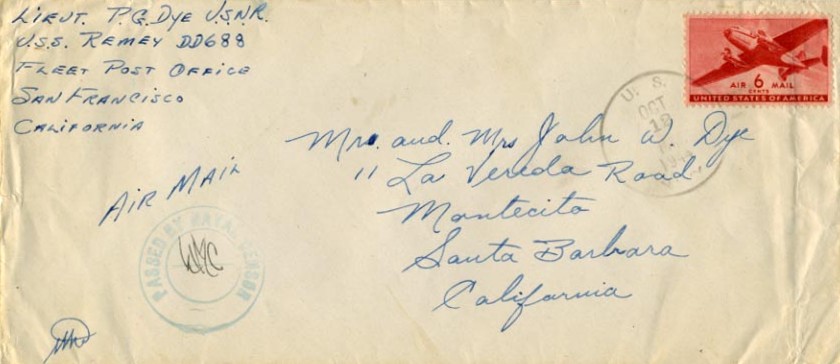 LIEUT. P.G. DYE U.S.N.R.
U.S.S. REMEY DD688
FLEET POST OFFICE
SAN FRANCISCO
CALIFORNIA
AIR 6 MAIL
CENTS
UNITED STATES OF AMERICA
U. S.
OCT
18
Mr. and. Mrs John W. Dye
11 La Vereda Road
Montecito
Santa Barbara
California
AIR MAIL
PASSED BY NAVAL CENSOR